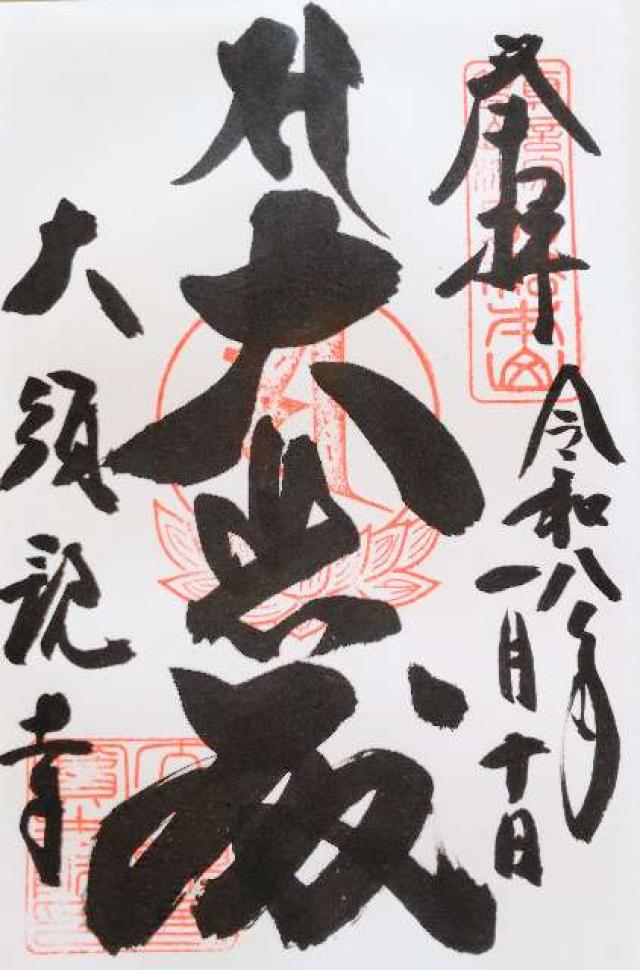 奉拝
令和八年
一月十日
大悲殿
大須観音